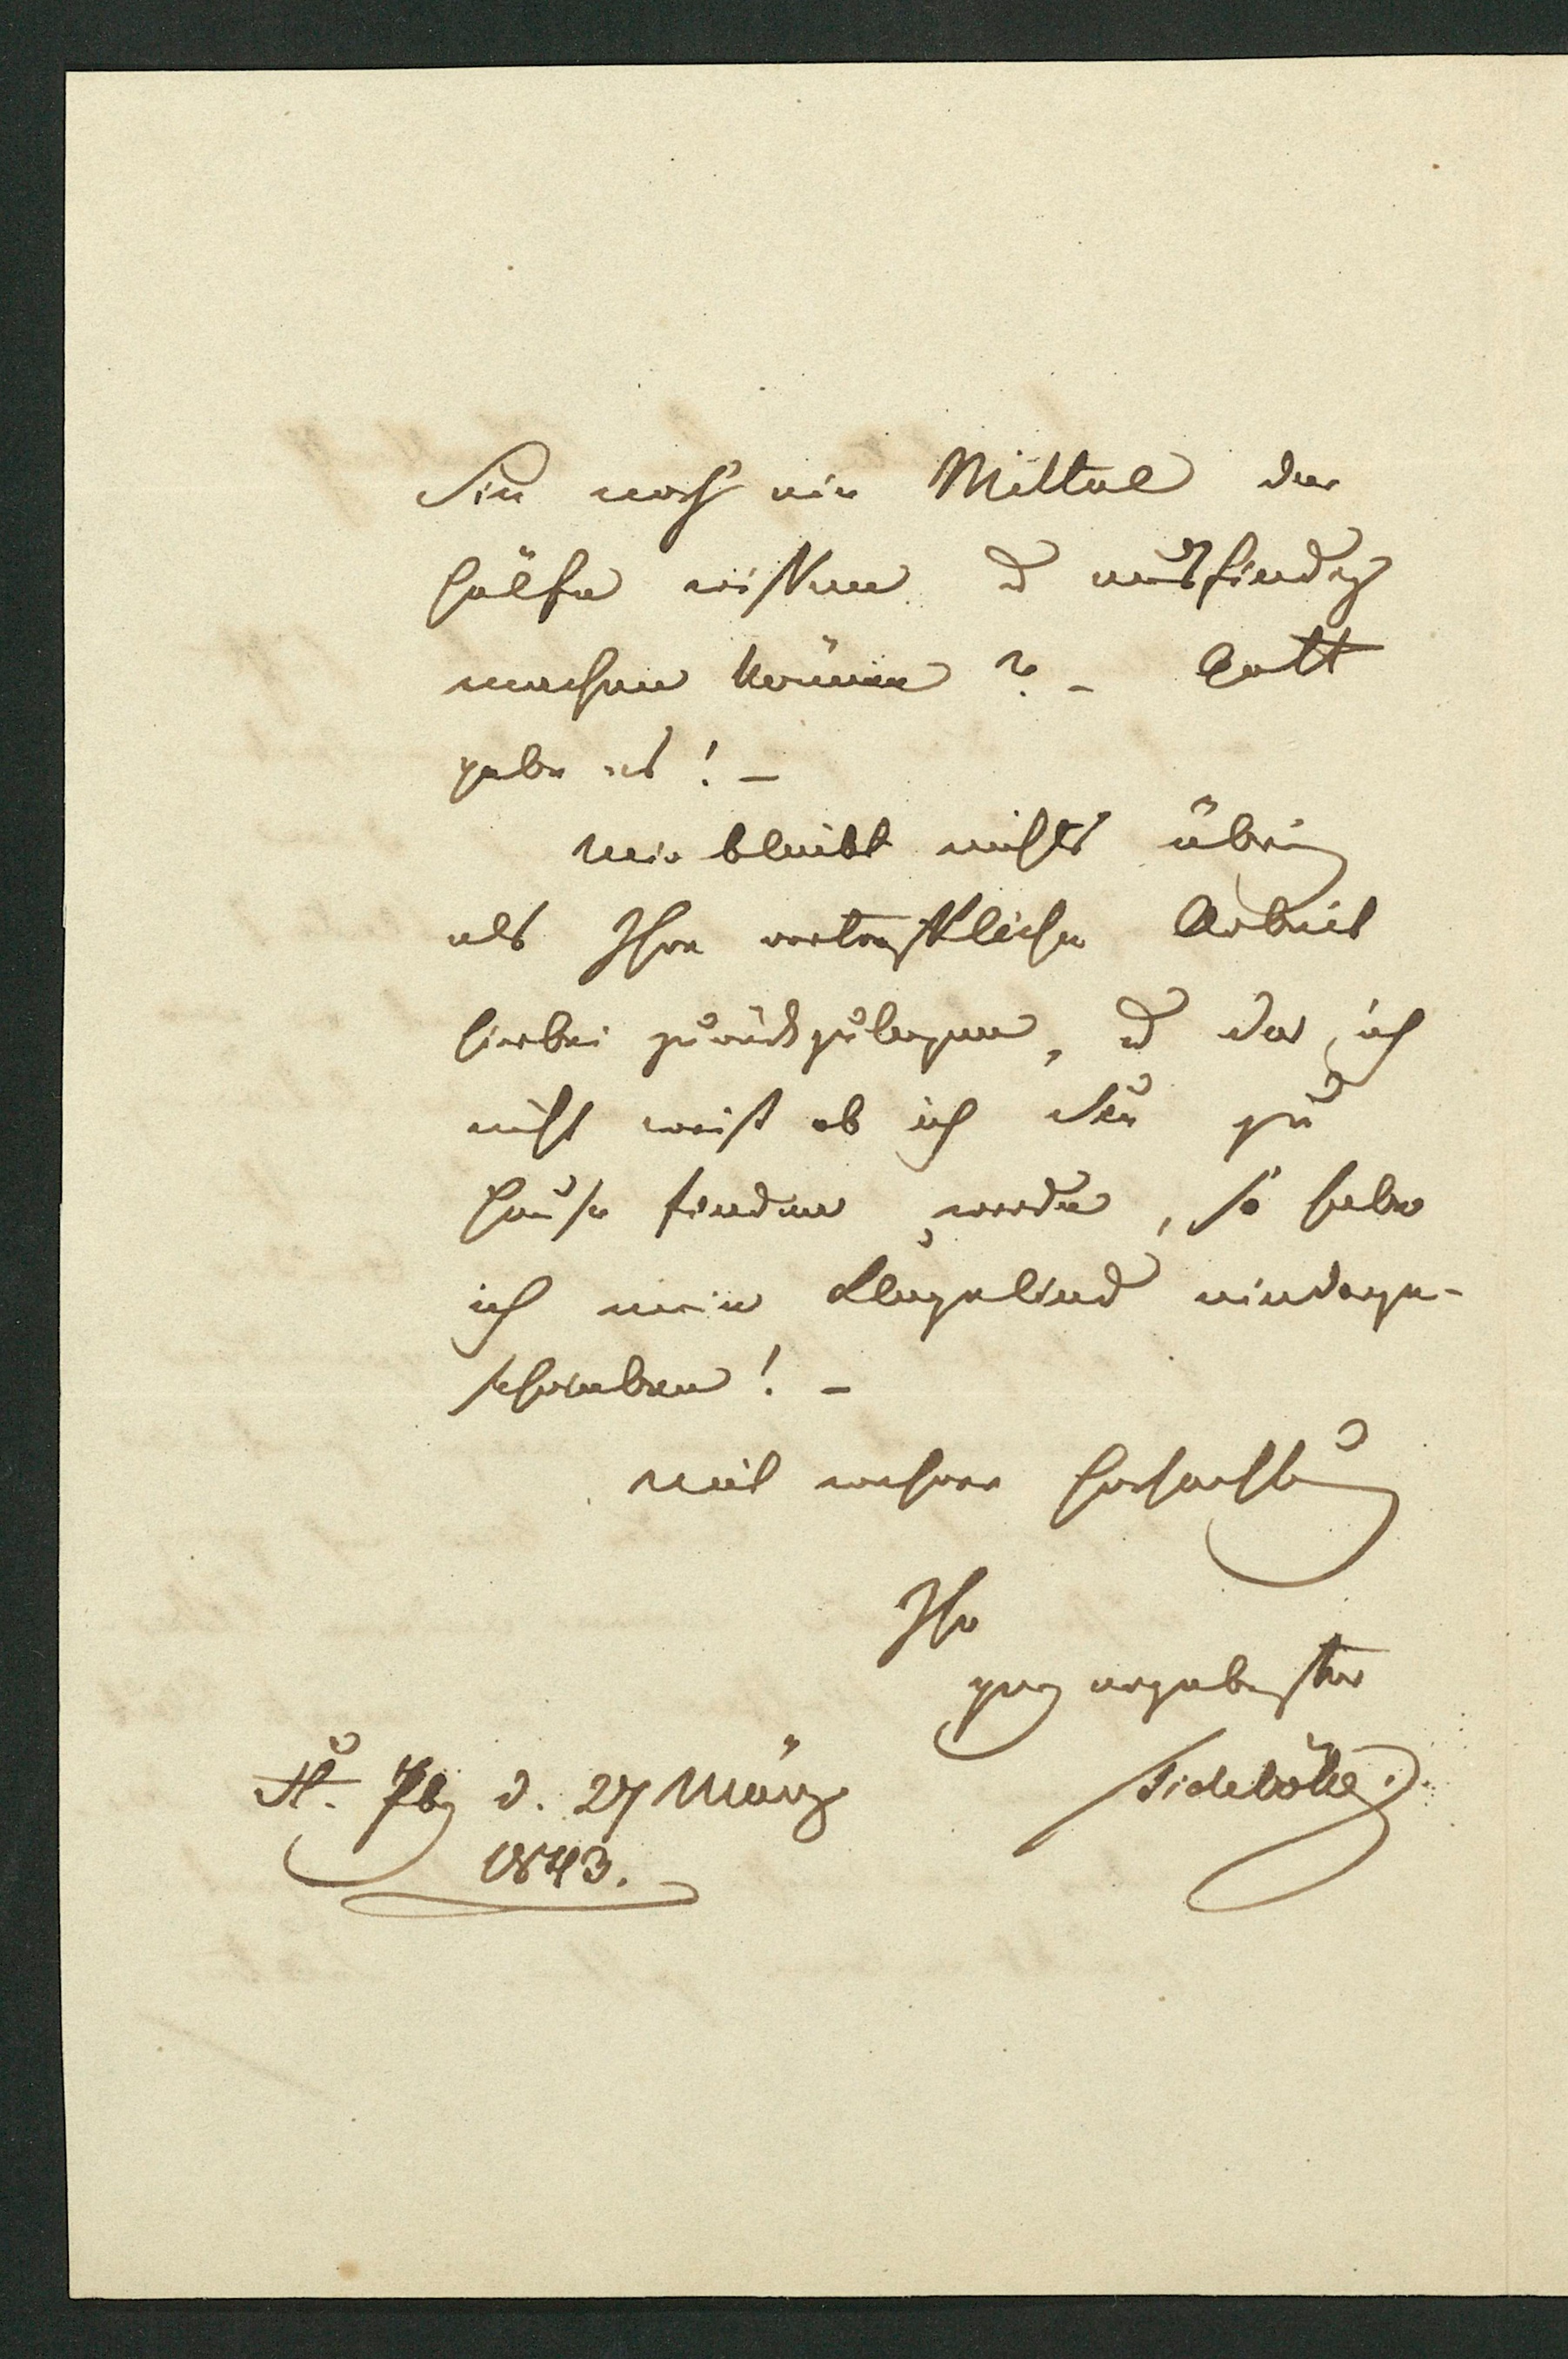 Sie noch ein Mittel der
Hülfe wissen u ausfindig
machen können? – Gott
gebe es! –
Mir bleibt nichts übrig
als Ihre vortreffliche Arbeit
hierbei zurückzulegen, u da ich
nicht weiß ob ich Sie zu
Hause finden werde, so habe
ich mein Klagelied niederge-
schrieben! –
Mit wahrer Hochachtung
Ihr
ganz ergebenster
St. Pbg d. 27 März
1843.